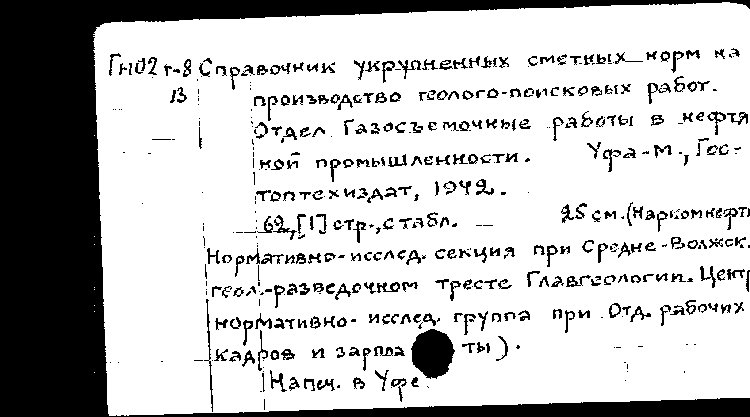 Гю02 г-8 Справочник укрупненных сметных норм на
13 производство геолого-поисковых работ.
Отдел Газосъемочные работы в нефтя
ной промышленности. Уфа-М., Гос-
топтехиздат, 1942.
62,[1] стр., с табл. 25 см. (Наркомнефть
Нормативно-исслед. секция при Средне-Волжск.
геол.-разведочном тресте Главгеологии. Центр
нормативно-исслед. группа при Отд. рабочих
кадров и зарпла ты).
Напеч. в Уфе